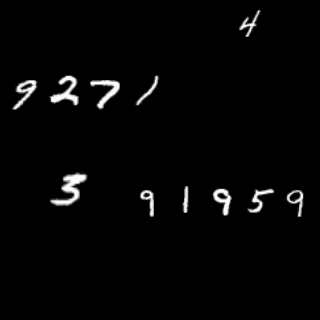 4
9271
3
91959